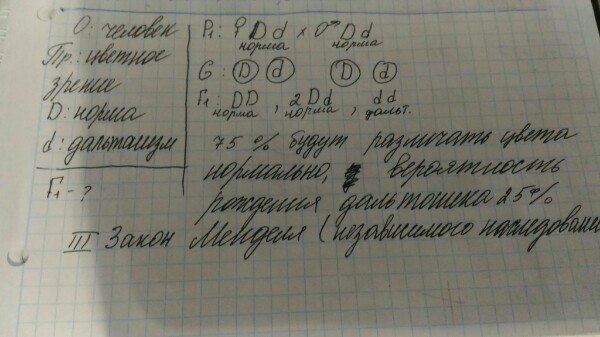 О: человек
Пр: цветное
зрение
D: норма
d: дальтонизм
F₁ - ?
P₁: ♀ D d × ♂ D d
норма норма
G: D d D d
F₁: DD, 2 Dd, dd
норма норма дальт.
75 % будут различать цвета
нормально, вероятность
рождения дальтоника 25%
III Закон Менделя (независимого наследован